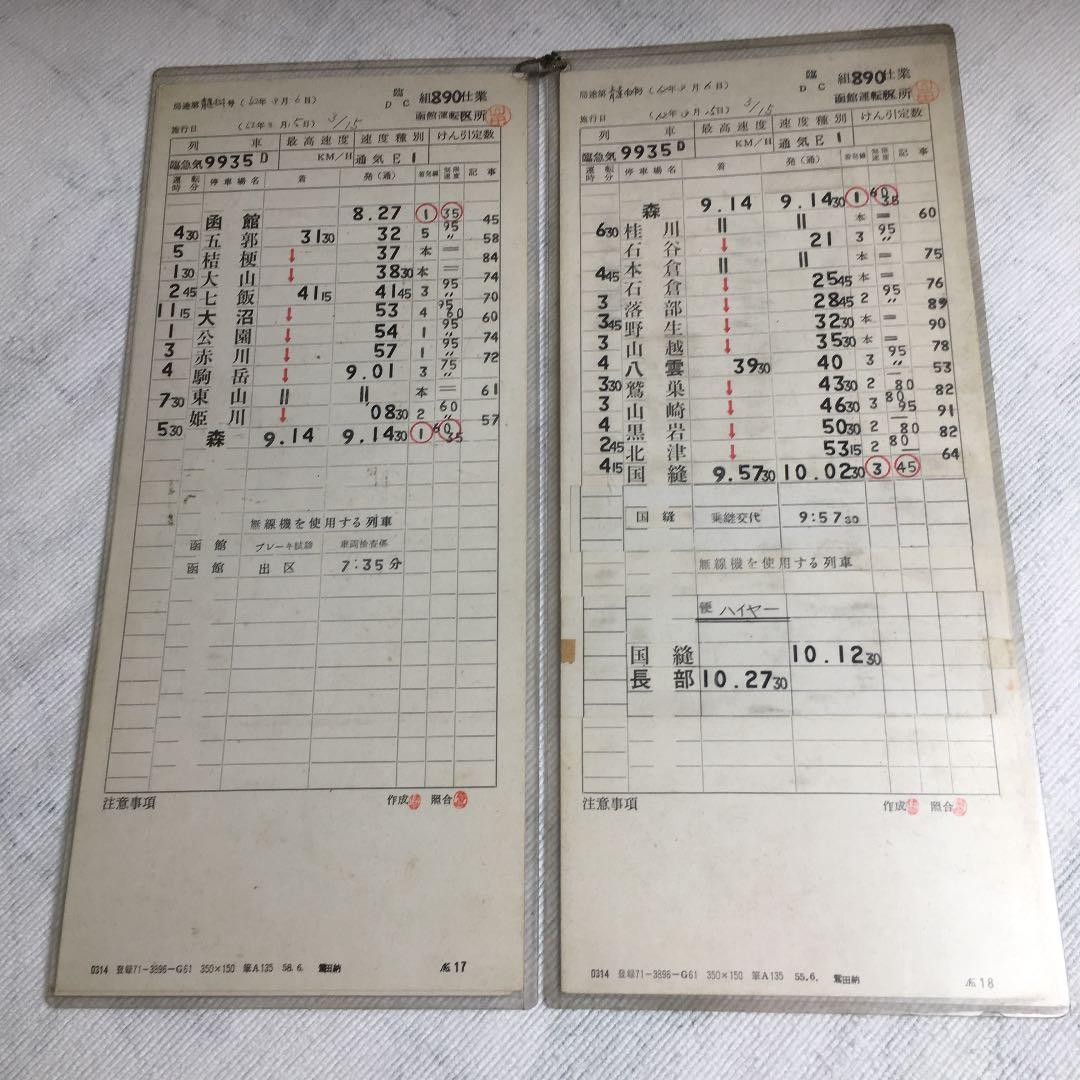 臨 組890仕業
D C
局達第 号 (62年3月6日) 函館運転区所
施行日 (62年3月15日) 3/15
列 車 最高速度 速度種別 けん引定数
臨急気9935D KM/H 通気E1
運転時分 停車場名 着 発(通) 着発線 制限速度 記事
函館 8.27 1 35
45
4 30 五郭 31 30 32 5 95 〃
58
5 桔梗 ↓ 37 本 =
84
1 30 大山 ↓ 38 30 本 =
74
2 45 七飯 41 15 41 45 3 95 〃
70
11 15 大沼 ↓ 53 4 95 60
60
1 公園 ↓ 54 1 95 〃
74
3 赤川 ↓ 57 1 95 〃
72
4 駒岳 ↓ 9.01 3 75 〃
東山 || || 本 =
61
7 30 姫川 ↓ 08 30 2 60 〃
57
5 30 森 9.14 9.14 30 1 60 35
無線機を使用する列車
函館 ブレーキ試験 車両検査係
函館 出区 7:35分
注意事項 作成 照合
0314 登録71-3896-G61 350×150 筆A135 58.6. 鷲田納 № 17
臨 組890仕業
D C
局達第 号 (62年3月6日) 函館運転区所
施行日 (62年3月15日) 3/15
列 車 最高速度 速度種別 けん引定数
臨急気9935D KM/H 通気E1
運転時分 停車場名 着 発(通) 着発線 制限速度 記事
森 9.14 9.14 30 1 60 35
60
桂川 || || 本 =
6 30 石谷 ↓ 21 3 95 〃
75
本石倉 || || 本 =
4 45 石倉 ↓ 25 45 本 =
76
3 落部 ↓ 28 45 2 95 〃
89
3 45 野生 ↓ 32 30 本 =
90
3 山越 ↓ 35 30 本 =
78
4 八雲 39 30 40 3 95 〃
53
3 30 鷲巣 ↓ 43 30 2 80
82
3 山崎 ↓ 46 30 3 80 95
91
4 黒岩 ↓ 50 30 2 80
82
2 45 北津 ↓ 53 15 2 80
64
4 15 国縫 9.57 30 10.02 30 3 45
国縫 乗継交代 9:57 30
無線機を使用する列車
便 ハイヤー
国縫 10.12 30
長部 10.27 30
注意事項 作成 照合
0314 登録71-3896-G61 350×150 筆A135 55.6. 鷲田納 № 18